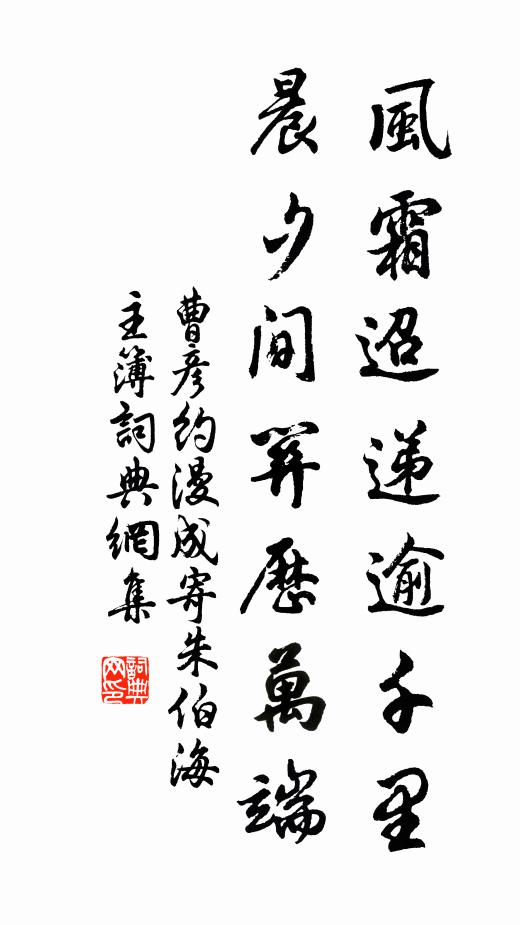 風霜迢递逾千里
晨夕間關歷萬端
曹彥約漫成寄朱伯海
主簿詞典網集
詞典网印